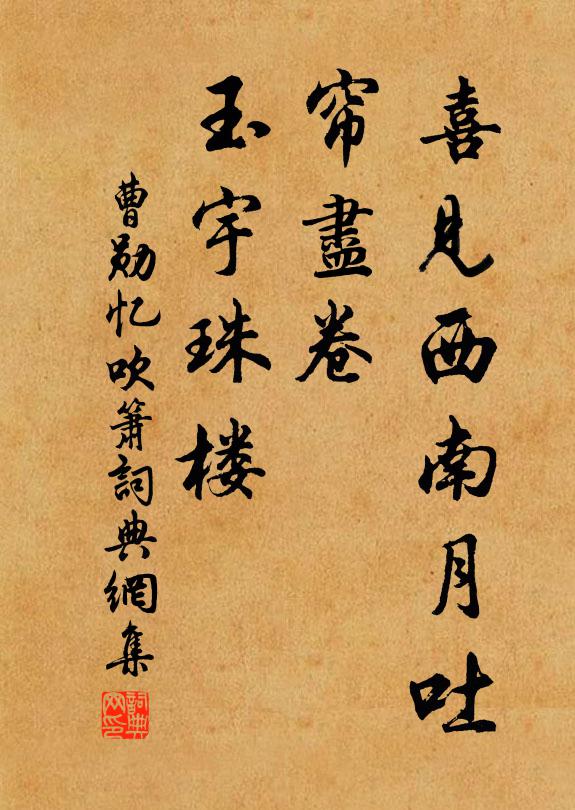 喜見西南月吐
帘盡卷
玉宇珠楼
曹勋忆吹簫詞典網集
詞典网印